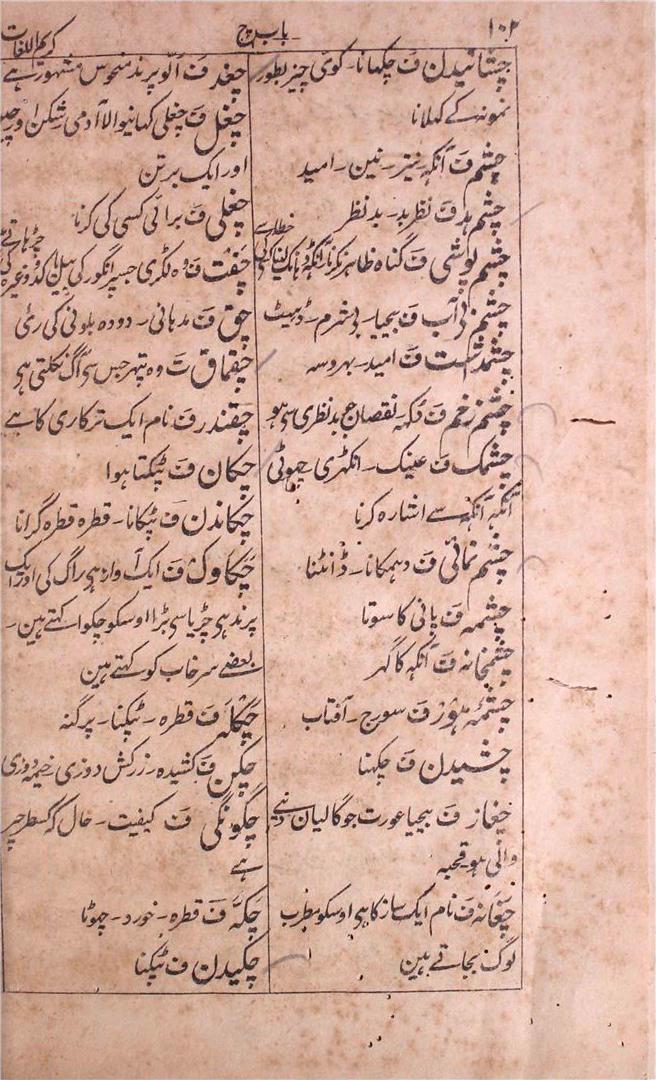 ۱۰۲
باب چ
کریم اللغات
چشانیدن ف چکھانا۔ کوی چیز بطور
نمونہ کے کہلانا
چشم ف آنکہہ نیز۔ نین۔ امید
چشم بد ف نظر بد۔ بد نظر
چشم پوشی ف گناہ ظاہر نکرنا
ف بیحیا۔ بی شرم۔ ڈہیٹ
چشمداشت ف امید۔ بہروسہ
چشم زخم ف دکہہ۔ نقصان جو بد نظری سی ہو
چشمک ف عینک۔ انکہڑی چہوٹی
آنکہہ آنکہہ سے اشارہ کرنا
چشم نمائی ف دہمکانا۔ ڈانٹنا
چشمہ ف پانی کا سوتا
چشمخانہ ف آنکہہ کا گہر
چشمۂ ہور ف سورج۔ آفتاب
چشیدن ف چکہنا
چغاز ف بیحیا عورت جو گالیان دینے
والی ہو۔ قحبہ
چغانہ ف نام ایک ساز کا ہی اوسکو مطرب
لوگ بجاتے ہین
چغد ف الّو پرند منحوس مشہور ہے
چغل ف چغلی کہانیوالا آدمی شکن اور چین
اور ایک برتن
چغلی ف برائی کسی کی کرنا
چفت ف وہ لکڑی جسپر انگور کی بیل
چق ف مدہانی۔ دودہ بلونی کی رئی
چقماق ت وہ پتہر جس سی آگ نکلتی ہی
چقندر ف نام ایک ترکاری کا ہے
چکان ف ٹپکتا ہوا
چکاندن ف ٹپکانا۔ قطرہ قطرہ گرانا
چکاوک ف ایک آواز ہی راگ کی اور ایک
پرند ہی چڑیا سی بڑا اوسکو چکوا کہتے ہین۔
بعضے سرخاب کو کہتے ہین
ف قطرہ۔ ٹپکنا۔ پرگنہ
چکن ف کشیدہ۔ زرکش دوزی۔ خیمہ دوزی
چگونگی ف کیفیت۔ حال کہ کسطرحپر
ہے
چکہ ف قطرہ۔ خورد۔ چہوٹا
چکیدن ف ٹپکنا